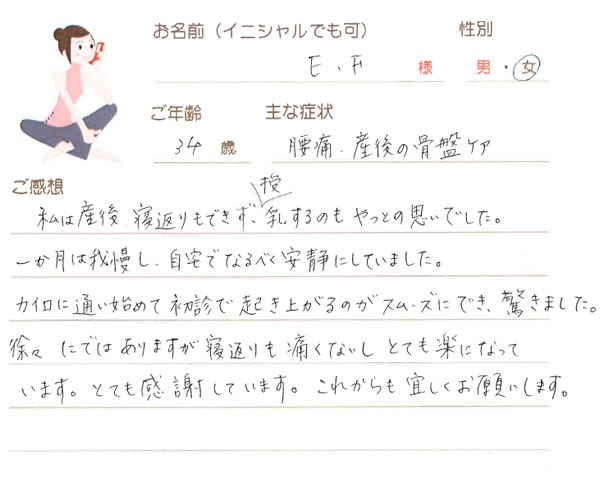 お名前（イニシャルでも可） 性別
E.F 様 男・女
ご年齢 主な症状
34 歳 腰痛.産後の骨盤ケア
ご感想
私は産後.寝返りもできず、授乳するのもやっとの思いでした。
一か月は我慢し、自宅でなるべく安静にしていました。
カイロに通い始めて初診で起き上がるのがスムーズにでき、驚きました。
徐々にではありますが寝返りも痛くないし とても楽になって
います。とても感謝しています。これからも宜しくお願いします。